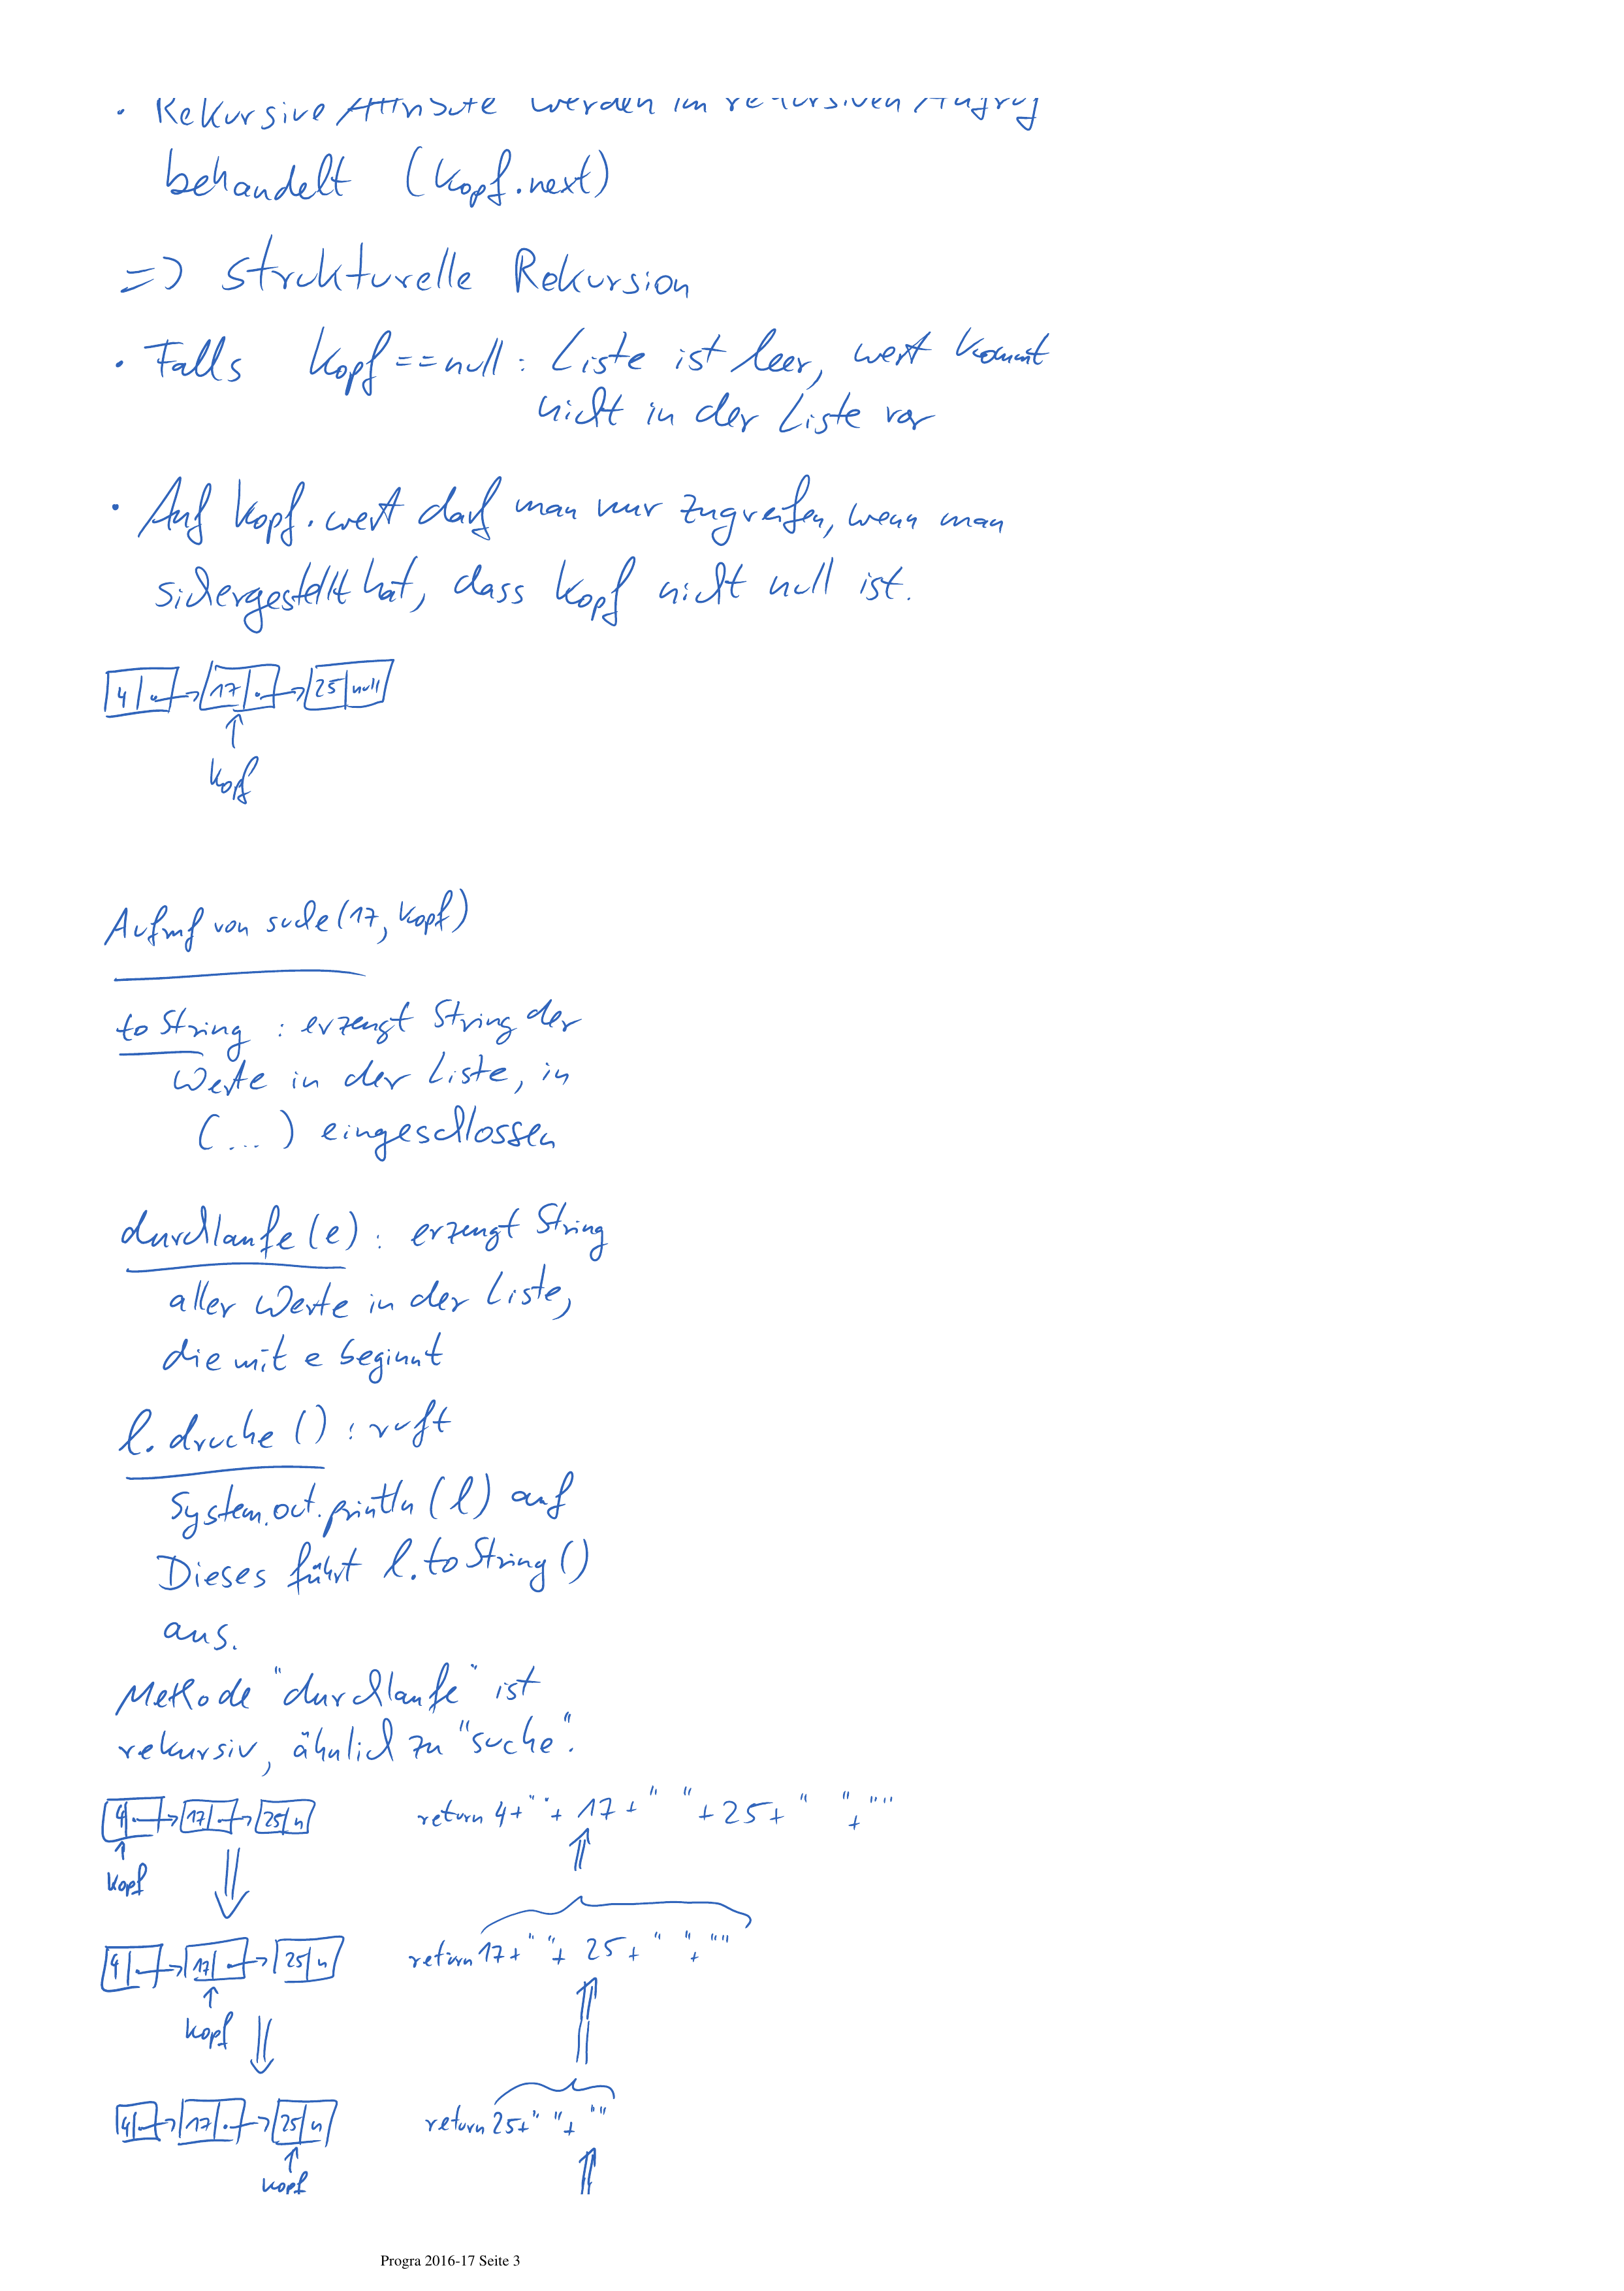 · Rekursive Attribute werden im rekursiven Aufruf
behandelt (Kopf.next)
=> strukturelle Rekursion
· Falls Kopf == null : Liste ist leer, wert kommt
nicht in der Liste vor
· Auf Kopf.wert darf man nur zugreifen, wenn man
sichergestellt hat, dass Kopf nicht null ist.
4 17 25 null
Kopf
Aufruf von suche(17, Kopf)
toString : erzeugt String der
Werte in der Liste, in
(...) eingeschlossen
durchlaufe(e) : erzeugt String
aller Werte in der Liste,
die mit e beginnt
l.drucke() : ruft
System.out.println(l) auf
Dieses führt l.toString()
aus.
Methode "durchlaufe" ist
rekursiv, ähnlich zu "suche".
4 17 25 n return 4+" "+ 17+" "+25+" "+""
Kopf
4 17 25 n return 17+" "+ 25+" "+""
Kopf
4 17 25 n return 25+" "+""
Kopf
Progra 2016-17 Seite 3